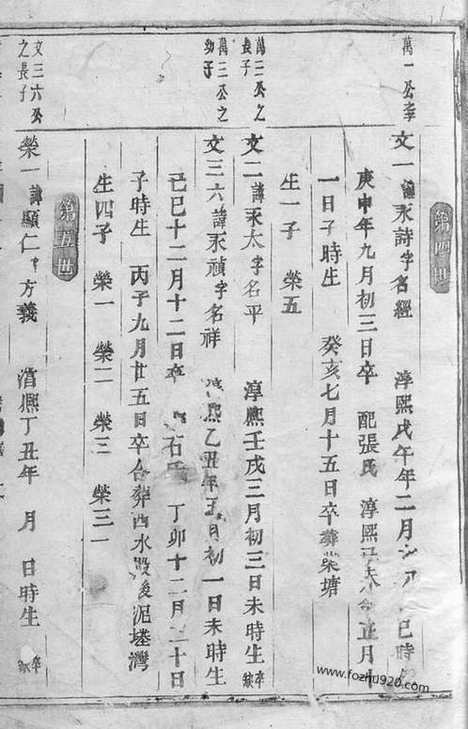 第四世
萬一公李
文一諱永詩字名經 淳熙戊午年二月 巳時
庚申年九月初三日卒 配張氏 淳熙 正月十
一日子時生 癸亥七月十五日卒葬柴塘
生一子 榮五
萬二公之長子
文二諱永太字名平 淳熙壬戌三月初三日未時生卒缺
萬三公之幼子
文三六諱永禎字名祥 熙乙丑年五月初一日未時生
己巳十二月十二日卒 石氏 丁卯十二月二十日
子時生 丙子九月廿五日卒合葬西水 後泥塘灣
生四子 榮一 榮二 榮三 榮三一
第五世
文三六公之長子
榮一諱顯仁字方義 淳熙丁丑年 月 日時生 卒缺
www.fozhu920.com